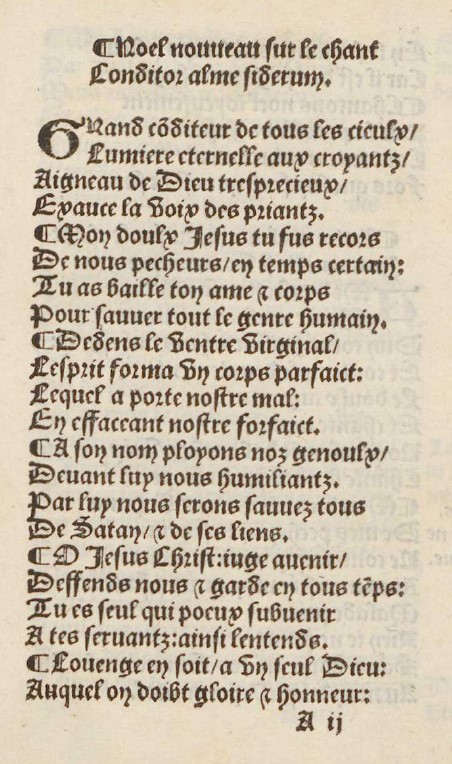 ¶Noel nouueau sur le chant
Conditor alme siderum.
GRand cõditeur de tous les cieulx/
Lumiere eternelle aux croyantz/
Aigneau de Dieu tresprecieux/
Exauce la voix des priantz.
¶Mon doulx Jesus tu fus recors
De nous pecheurs/en temps certain:
Tu as baille ton ame ⁊ corps
Pour sauuer tout le genre humain.
¶Dedens le ventre virginal/
Lesprit forma vn corps parfaict:
Lequel a porte nostre mal:
En effaceant nostre forfaict.
¶A son nom ployons noz genoulx/
Deuant luy nous humiliantz.
Par luy nous serons sauuez tous
De Satan/⁊ de ses liens.
¶O Jesus Christ:iuge auenir/
Deffends nous ⁊ garde en tous tẽps:
Tu es seul qui poeux subuenir
A tes seruantz:ainsi lentends.
¶Louenge en soit/a vn seul Dieu:
Auquel on doibt gloire ⁊ honneur:
A ij